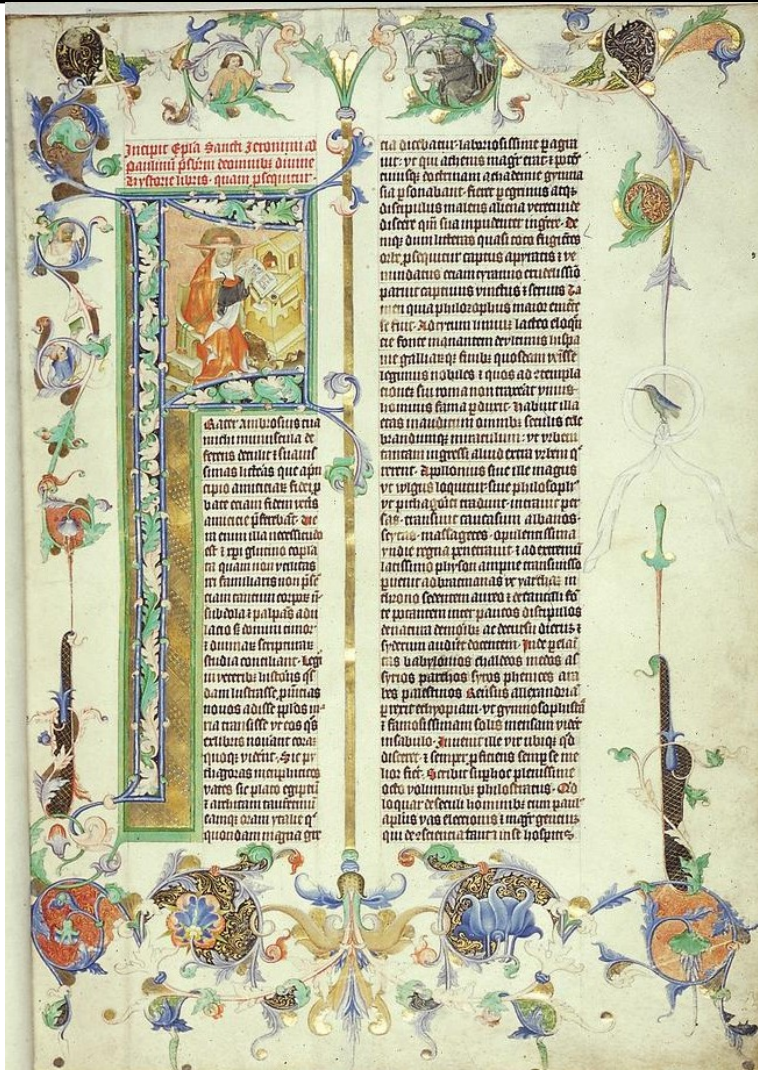 Incipit Epla Sancti Jeronimi ad
paulinū psbrm deomnibꝰ diuine
hystorie libris · quam psequitur ·
F
Rater Ambrosius tua
michi munuscula de
ferens detulit ⁊ suauis
simas litteras que apri
cipio amiciciaꝝ fidē p
bate etiam fidem veteris
amicicie pferebāt · Ue
ra enim illa necessitudo
est ⁊ xpi glutino copla
ta quam non vtilitas
rei familiaris non psē
cia tantum corporū nō
subdola ⁊ palpās adu
lacio sꝫ domini timor
⁊ diuinaꝝ scripturaꝝ
studia conciliant · Legi
in veteribꝰ historiis qs
dam lustrasse puincias
nouos adisse pplos ma
ria transisse vt eos qs
exlibris nouant coram
quoqꝫ viderēt · Sic py
thagoras memphiticos
vates sic plato egiptū
⁊ architam tarentinū
eamqꝫ oram ytalie q
quondam magna gre
cia dicebatur laboriosissime pagra
uit · vt qui athenis magr erat ⁊ potēs
cuiusqꝫ doctrinam achademie gymna
sia psonabant · fieret pegrinus atqꝫ
discipulus malens aliena verecunde
discere qm sua inpudenter ingere · De
niqꝫ dum litteras quasi toto fugiētes
orbe psequitur captus apyratis ⁊ ve
nundatus etiam tyranno crudelissīo
paruit captiuus vinctus ⁊ seruus Ta
men quia philosophus maior emēte
se fuit · Ad tytum liuium lacteo eloqn
cie fonte manantem de vltimis hispa
nie galliarūqꝫ finibꝰ quosdam venisse
legimus nobiles ⁊ quos ad ɔtempla
cionem sui roma non traxerat vnius
hominis fama pduxit · habuit illa
etas inauditum omnibꝰ seculis cele
brandumqꝫ miraculum · vt vrbem
tantam ingressi aliud extra vrbem q
rerent · Appllonius siue ille magus
vt wlgus loquitur siue philosophꝰ
vt pithagorici tradunt · intrauit per
sas · transiuit caucasum albanos ·
scytas · massagetes · opulentissima
yndie regna penetrauit · ⁊ ad extremū
latissimo physon ampne transmisso
puenit ad bracmanas vt yarcham in
throno sedentem aureo ⁊ detantali fō
te potantem inter paucos discipulos
denatura de moribꝰ ac decursu dierum ⁊
syderum audiret docentem · Inde p elam
tas babylonios chaldeos medos as
syrios parthos syros phenices ara
bes palestinos Reuersus allexandriā
prexit ethyopiam · vt gymnosophistas
⁊ famosissimam solis mensam videret
insabulo · Inuenit ille vir vbiqꝫ qd
disceret · ⁊ semper pficiens semper se me
lior fieret · Scribit suphoc plenissime
octo voluminibꝰ philostratus · Qd
loquar deseculi hominibꝰ cum paulꝰ
aplus vas electionis ⁊ magr gencium
qui descientia tanti inse hospitis